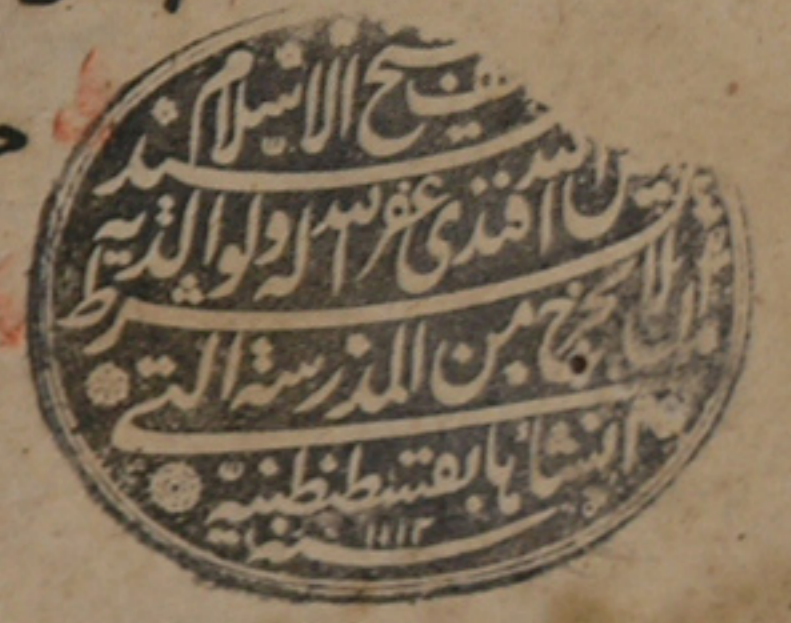 شيخ الاسلام السيد
فيض الله افندى غفر الله له ولوالديه
بشرط ان لا يخرج من المدرسة التى
انشأها بقسطنطينية
سنه ١١١٣